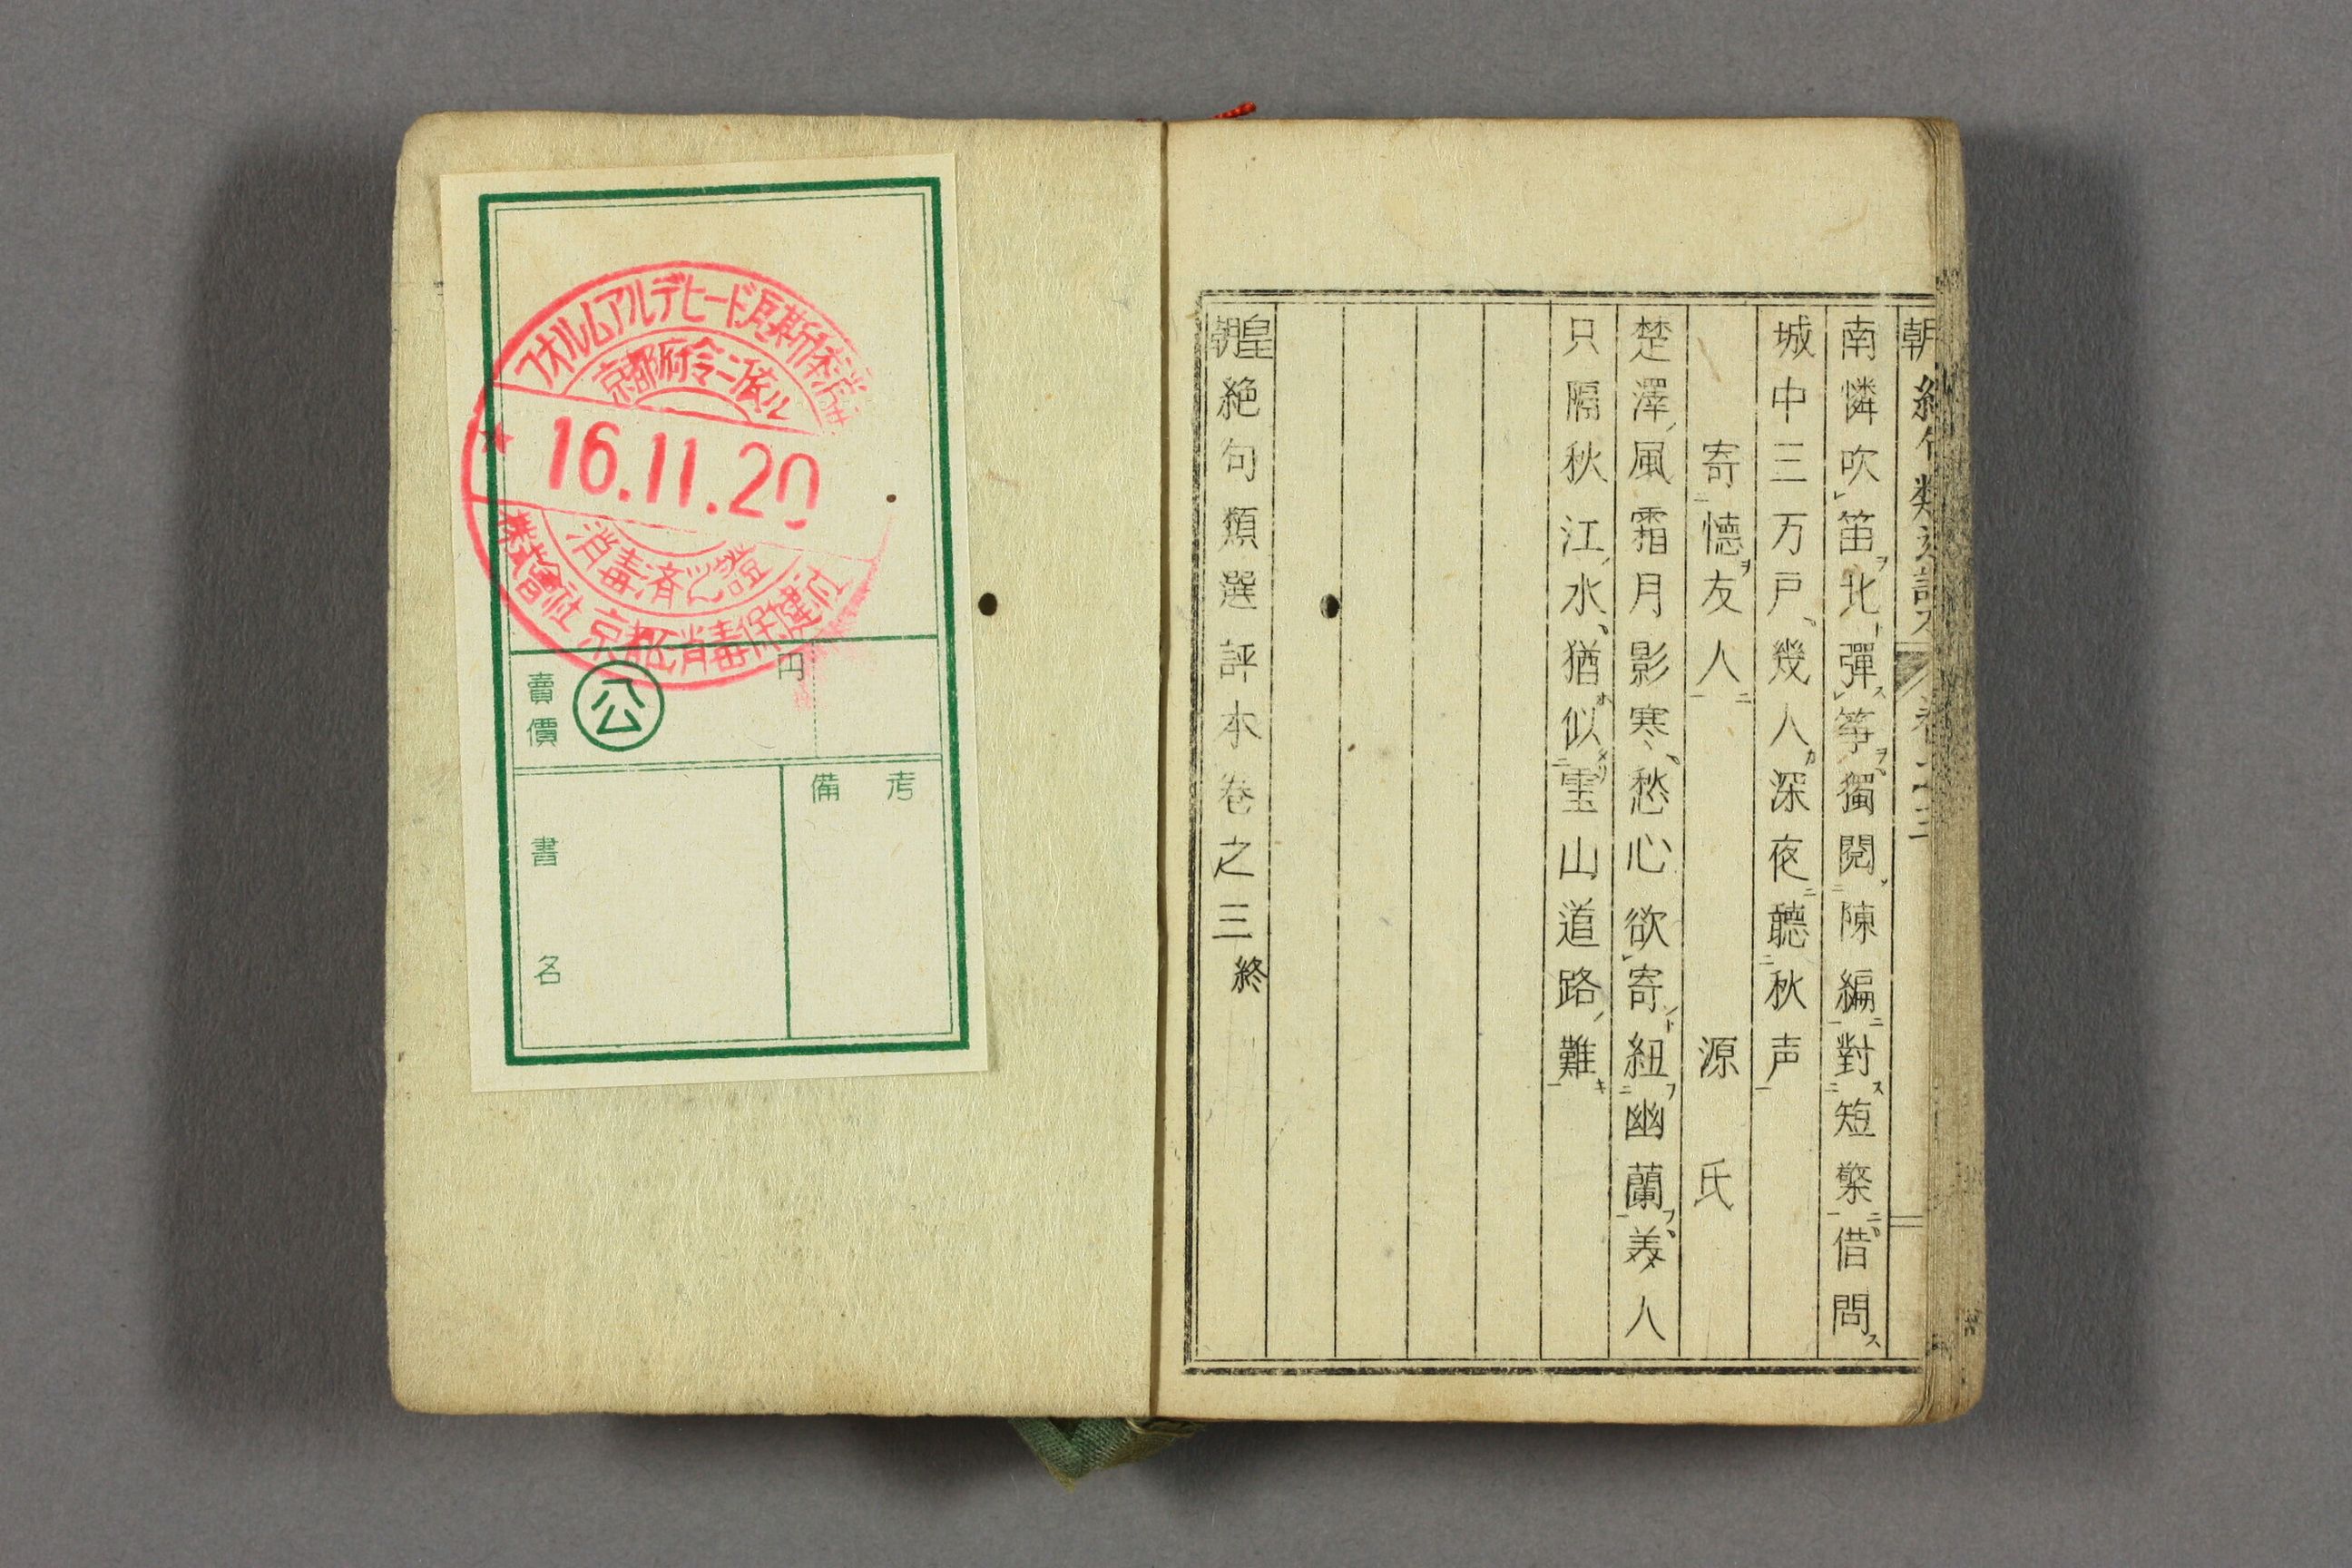 朝絶句類選評本 卷之三
南憐吹笛北彈箏獨閱陳編對短檠借問
城中三万戸幾人深夜聽秋声
寄懐友人 源氏
楚澤風霜月影寒愁心欲寄紐幽蘭美人
只隔秋江水猶似雪山道路難
皇朝絶句類選評本卷之三終
フオルムアルデヒード瓦斯体消毒
京都府令ニ依ル
16.11.20
消毒済之證
株式會社京都消毒保健社
賣價 公 円
備考
書名